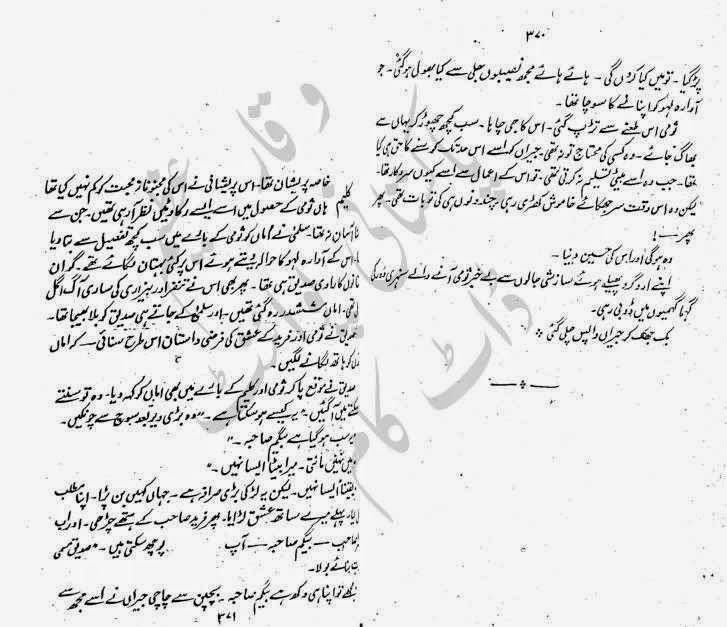 ۳۷۰
پڑ گیا ۔ تو میں کیا کروں گی ۔ ہائے ہائے مجھ نصیبوں جلی سے کیا بھول ہو گئی ۔ جو
آوارہ لہو کو اپنانے کا سوچا تھا ۔
ثومی اس طعنے سے تڑپ گئی ۔ اس کا جی چاہا ۔ سب کچھ چھوڑ کر یہاں سے
بھاگ جائے ۔ وہ کسی کی محتاج تو نہ تھی ۔ جیراں کو اسے اس حد تک کوسنے کا حق ہی کیا
تھا ۔ جب وہ اسے بیٹی تسلیم نہ کرتی تھی ۔ تو اس کے اعمال سے اسے کیوں سروکار تھا ۔
لیکن وہ اس وقت سر جھکائے خاموش کھڑی رہی ۔ چند دنوں ہی کی تو بات تھی ۔ پھر
پھر !!
وہ ہو گی اور اس کی حسین دنیا ۔
اپنے ارد گرد پھیلے ہوئے سازشی جالوں سے بے خبر ثومی آنے والے سنہری دور کی
گہما گہمیوں میں ڈوبی رہی ۔
بک جھک کر جیراں واپس چلی گئی
خاصہ پریشان تھا ۔ اس پریشانی نے اس کی محبت کو کم نہیں کیا تھا
کلیم ہاں ثومی کے حصول میں اسے ایسے رکاوٹیں نظر آ رہی تھیں ۔ جن سے
آسان نہ تھا ۔ سلمیٰ نے اماں کو ثومی کے بارے میں سب کچھ تفصیل سے بتا دیا
اس کے آوارہ لہو کا حوالہ دیتے ہوئے اس پر کئی بہتان لگائے تھے ۔ گو ان
کا راوی صدیق ہی تھا ۔ پھر بھی اس نے تنفر اور بیزاری کی ساری آگ اگل
تھی ۔ اماں ششدر رہ گئی تھیں ۔ اور سلمیٰ کے جاتے ہی صدیق کو بلا بھیجا تھا ۔
صدیق نے ثومی اور فرید کے عشق کی فرضی داستان اس طرح سنائی کہ اماں
کو ہاتھ لگانے لگیں ۔
صدیق نے موقع پا کر ثومی اور کلیم کے بارے میں بھی اماں کو کہہ دیا ۔ وہ تو سنتے
سکتے میں آ گئیں ۔ "یہ کیسے ہو سکتا ہے ۔" وہ بڑی دیر بعد سوچ سے چونکیں ۔
"یہ سب ہو گیا ہے بیگم صاحبہ ۔"
"میں نہیں مانتی ۔ میرا بیٹا ایسا نہیں ۔"
یقیناً ایسا نہیں ۔ لیکن یہ لڑکی بڑی حرافہ ہے ۔ جہاں کہیں بن پڑا ۔ اپنا مطلب
پہلے میرے ساتھ عشق لڑایا ۔ پھر فرید صاحب کے ہتھے چڑھی ۔ اور اب
صاحب ۔ بیگم صاحبہ ۔ آپ پوچھ سکتی ہیں ۔" صدیق
بنائے بولا ۔
مجھے تو اپنا ہی دکھ ہے بیگم صاحبہ ۔ بچپن سے چاچی جیراں نے اسے مجھ سے
۳۷۱
وقار
پاکستانی پوائنٹ
ڈاٹ کام